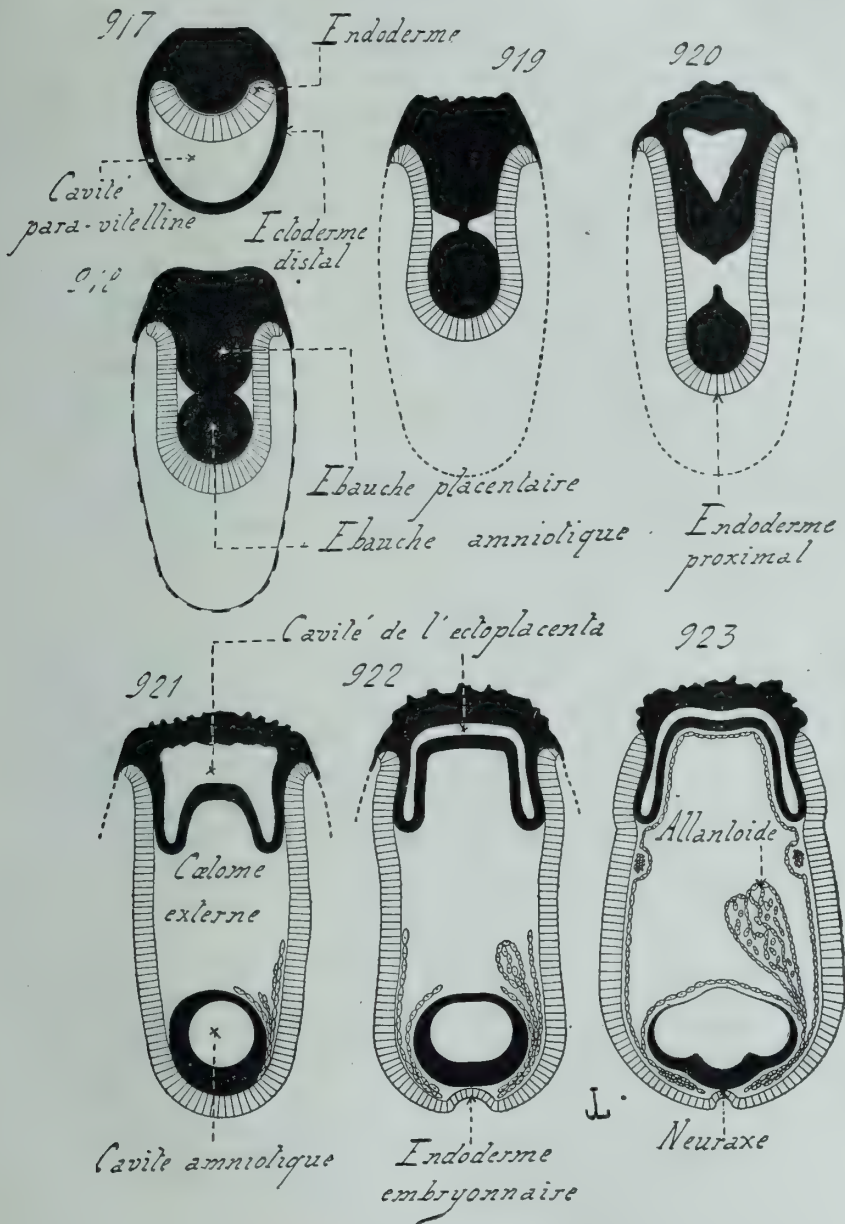 917
Endoderme
919
920
Cavité
para-vitelline
Ectoderme
distal
918
Ebauche placentaire
Ebauche amniotique
Endoderme
proximal
Cavité de l'ectoplacenta
921
922
923
Cœlome
externe
Allantoïde
Cavité amniotique
Endoderme
embryonnaire
Neuraxe